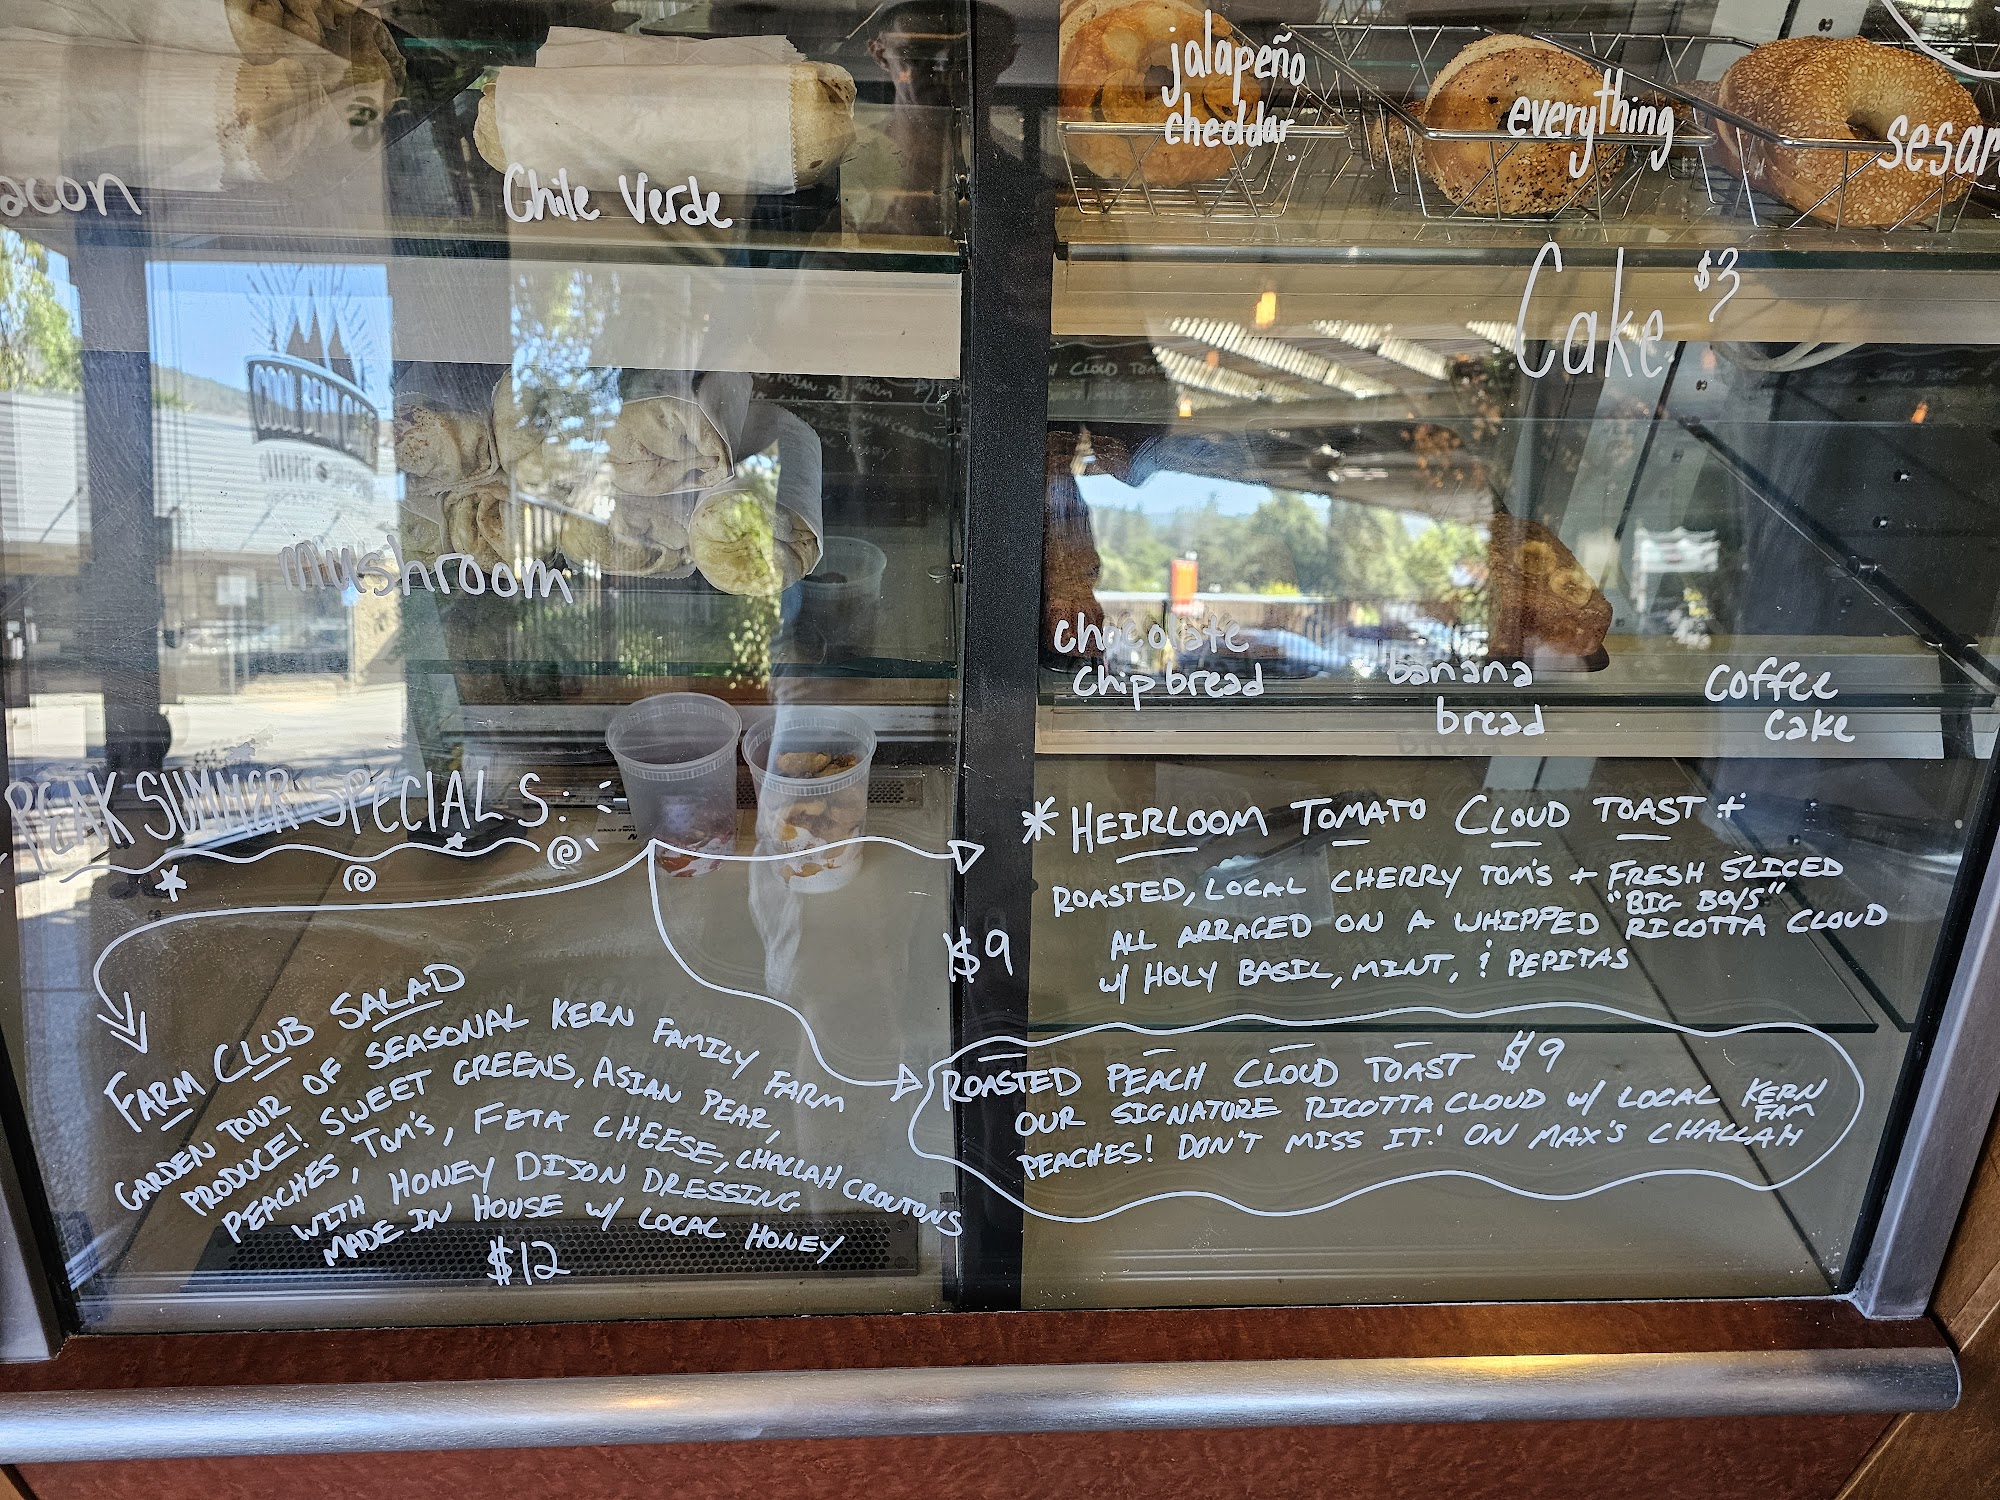 acon
Chile Verde
jalapeño
cheddar
everything
sesam
Cake $3
mushroom
chocolate
chip bread
banana
bread
coffee
cake
PEAK SUMMER SPECIALS:
FARM CLUB SALAD
GARDEN TOUR OF SEASONAL KERN FAMILY FARM
PRODUCE! SWEET GREENS, ASIAN PEAR,
PEACHES, TOM'S, FETA CHEESE, CHALLAH CROUTONS
WITH HONEY DIJON DRESSING
MADE IN HOUSE W/ LOCAL HONEY
$12
* HEIRLOOM TOMATO CLOUD TOAST +
ROASTED, LOCAL CHERRY TOM'S + FRESH SLICED
"BIG BOYS"
ALL ARRAGED ON A WHIPPED RICOTTA CLOUD
W/ HOLY BASIL, MINT, & PEPITAS
$9
ROASTED PEACH CLOUD TOAST $9
OUR SIGNATURE RICOTTA CLOUD W/ LOCAL KERN
FAM
PEACHES! DON'T MISS IT! ON MAX'S CHALLAH